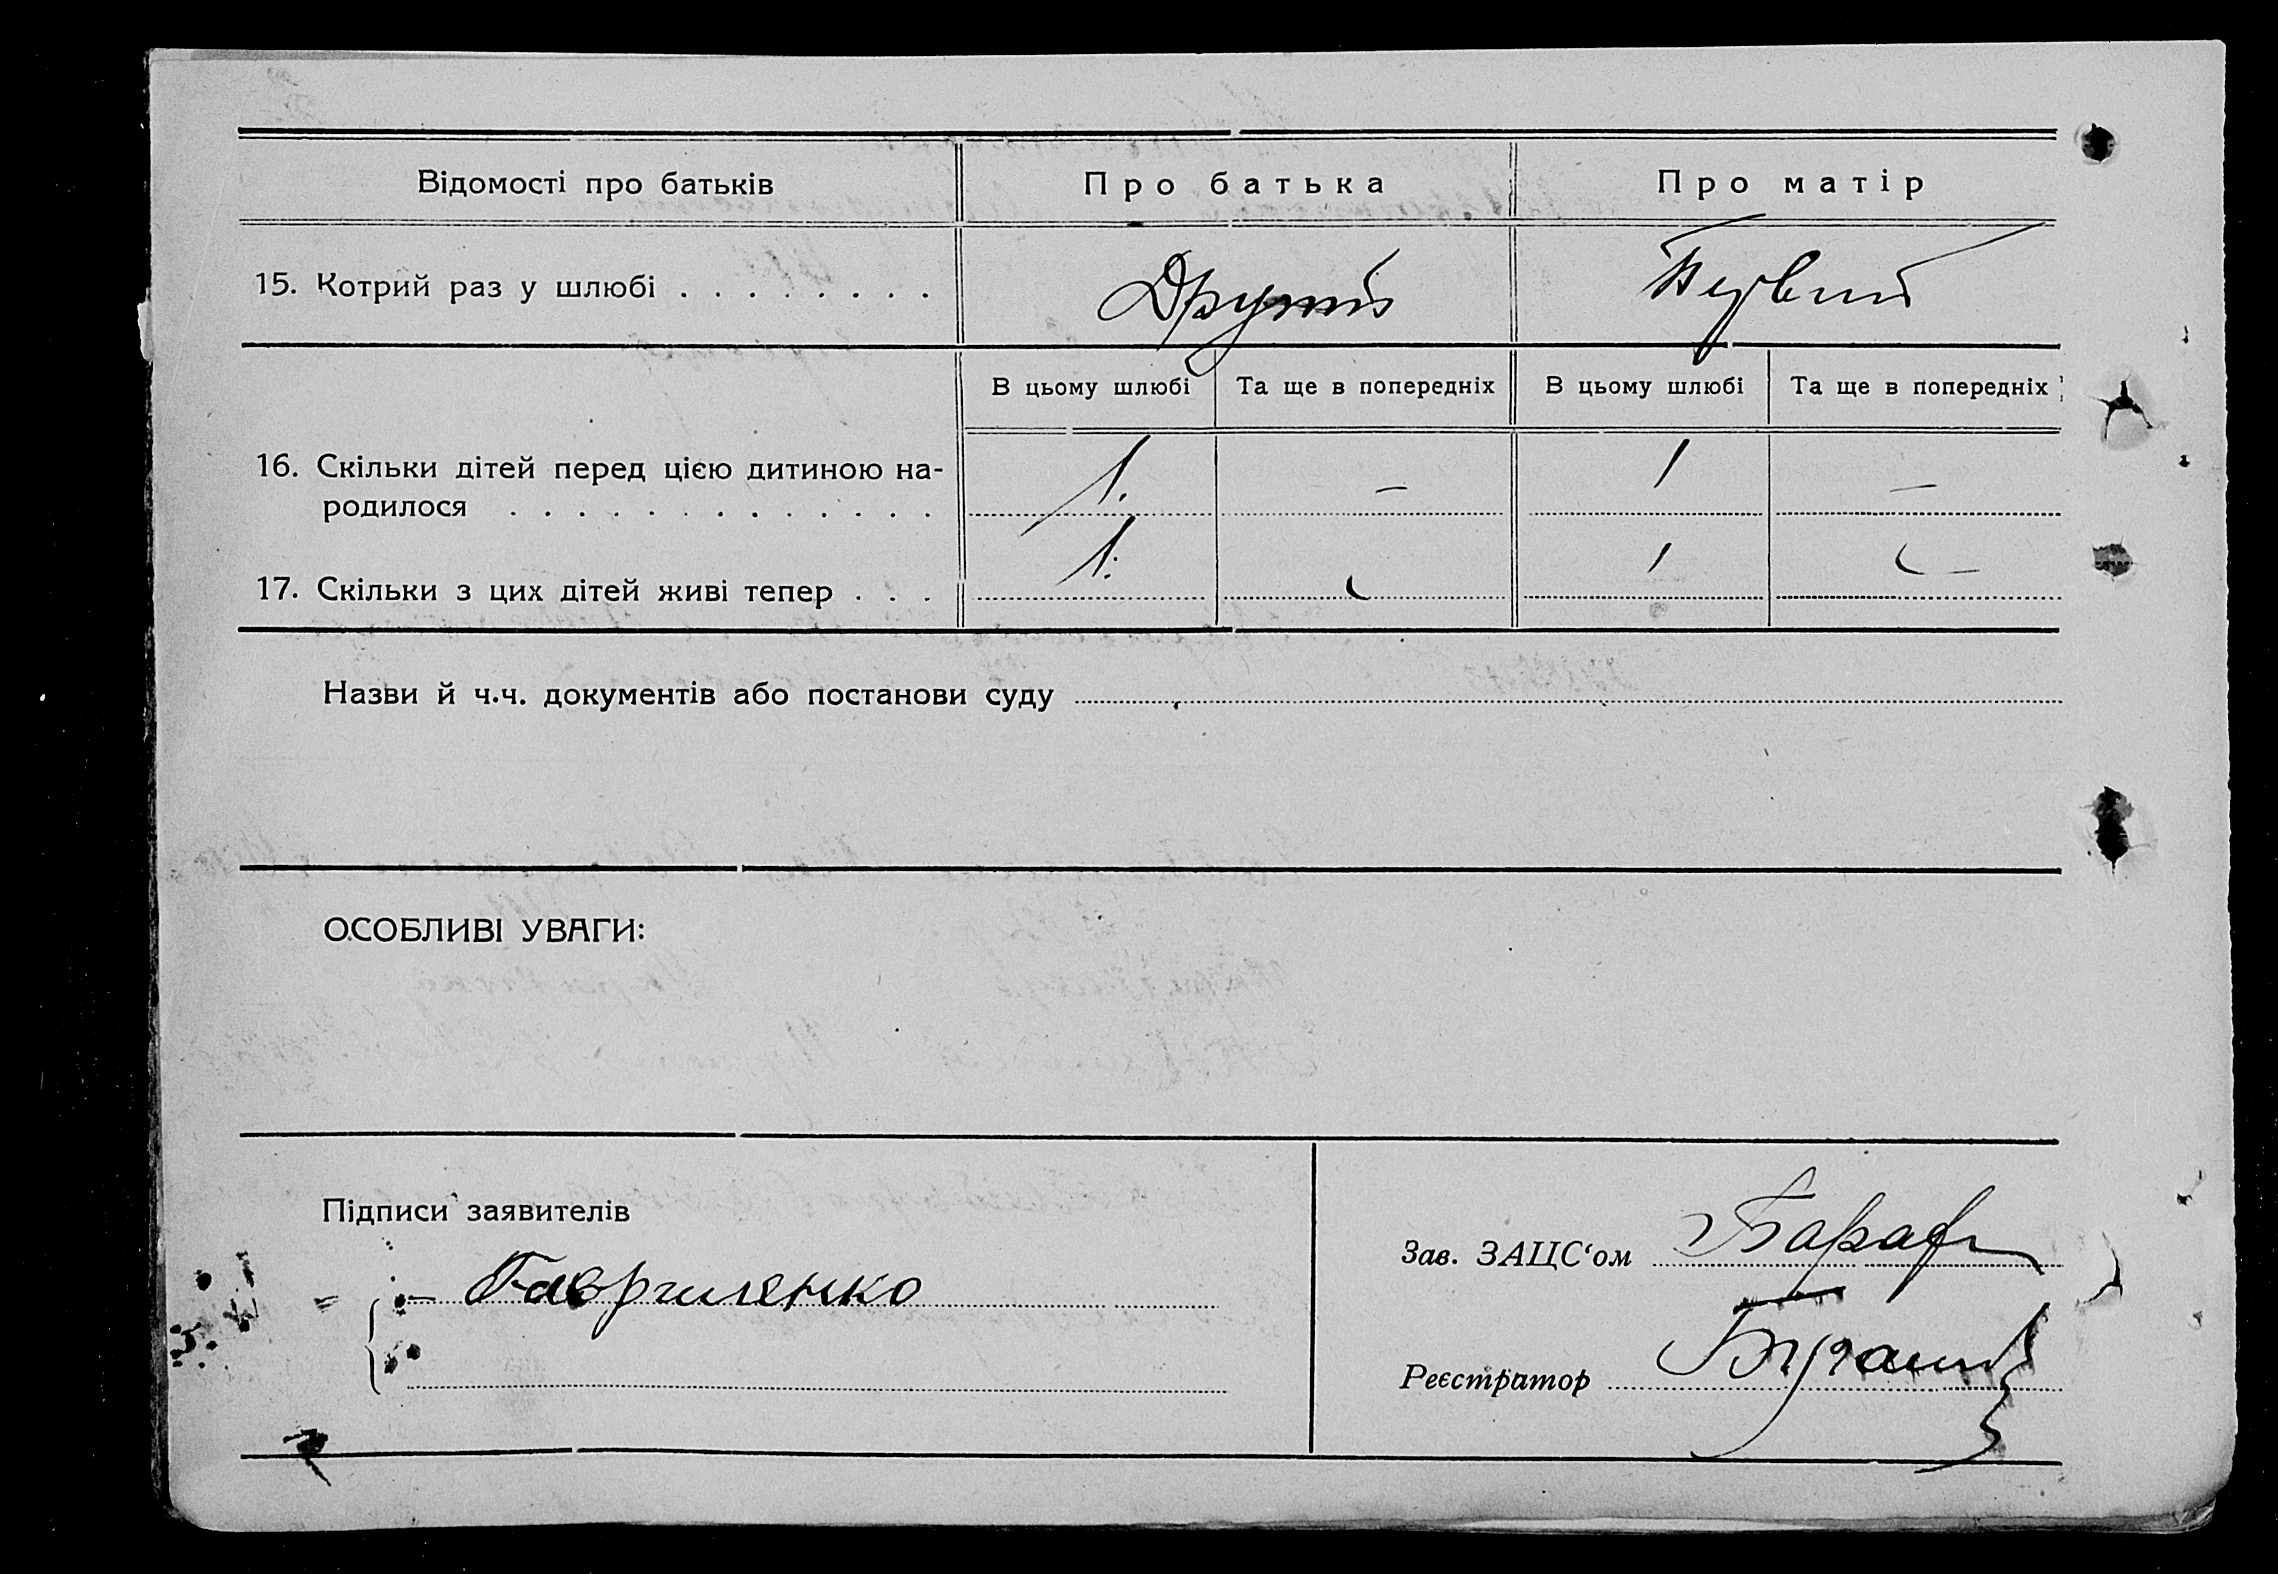 Відомості про батьків
Про батька
Про матір
15. Котрий раз у шлюбі . . . . . . . .
Другий
Первий
В цьому шлюбі
Та ще в попередніх
В цьому шлюбі
Та ще в попередніх
16. Скільки дітей перед цією дитиною на-
родилося . . . . . . . . . . . . .
1.
—
1
—
17. Скільки з цих дітей живі тепер . . .
1.
1
—
Назви й ч.ч. документів або постанови суду
ОСОБЛИВІ УВАГИ:
Підписи заявителів
Гавриленко
Зав. ЗАЦС‘ом
Реєстратор